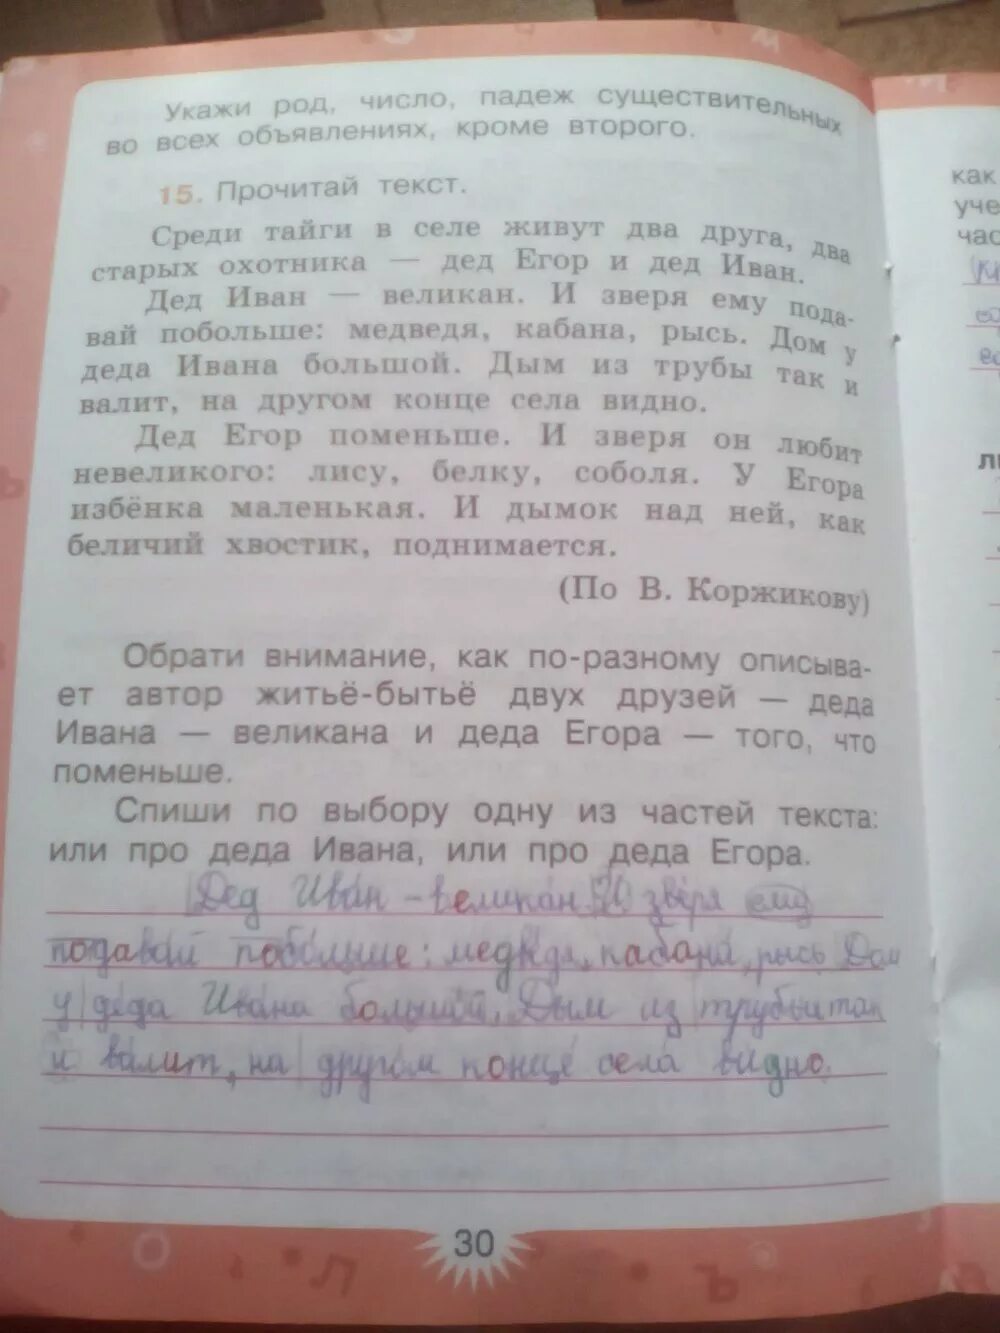 Укажи род, число, падеж существительных
во всех объявлениях, кроме второго.
15. Прочитай текст.
Среди тайги в селе живут два друга, два
старых охотника — дед Егор и дед Иван.
Дед Иван — великан. И зверя ему пода-
вай побольше: медведя, кабана, рысь. Дом у
деда Ивана большой. Дым из трубы так и
валит, на другом конце села видно.
Дед Егор поменьше. И зверя он любит
невеликого: лису, белку, соболя. У Егора
избёнка маленькая. И дымок над ней, как
беличий хвостик, поднимается.
(По В. Коржикову)
Обрати внимание, как по-разному описыва-
ет автор житьё-бытьё двух друзей — деда
Ивана — великана и деда Егора — того, что
поменьше.
Спиши по выбору одну из частей текста:
или про деда Ивана, или про деда Егора.
Дед Иван - великан. И зверя ему
подавай побольше: медведя, кабана, рысь Дом
у деда Ивана большой, Дым из трубы так
и валит, на другом конце села видно.
30
как
уче
час